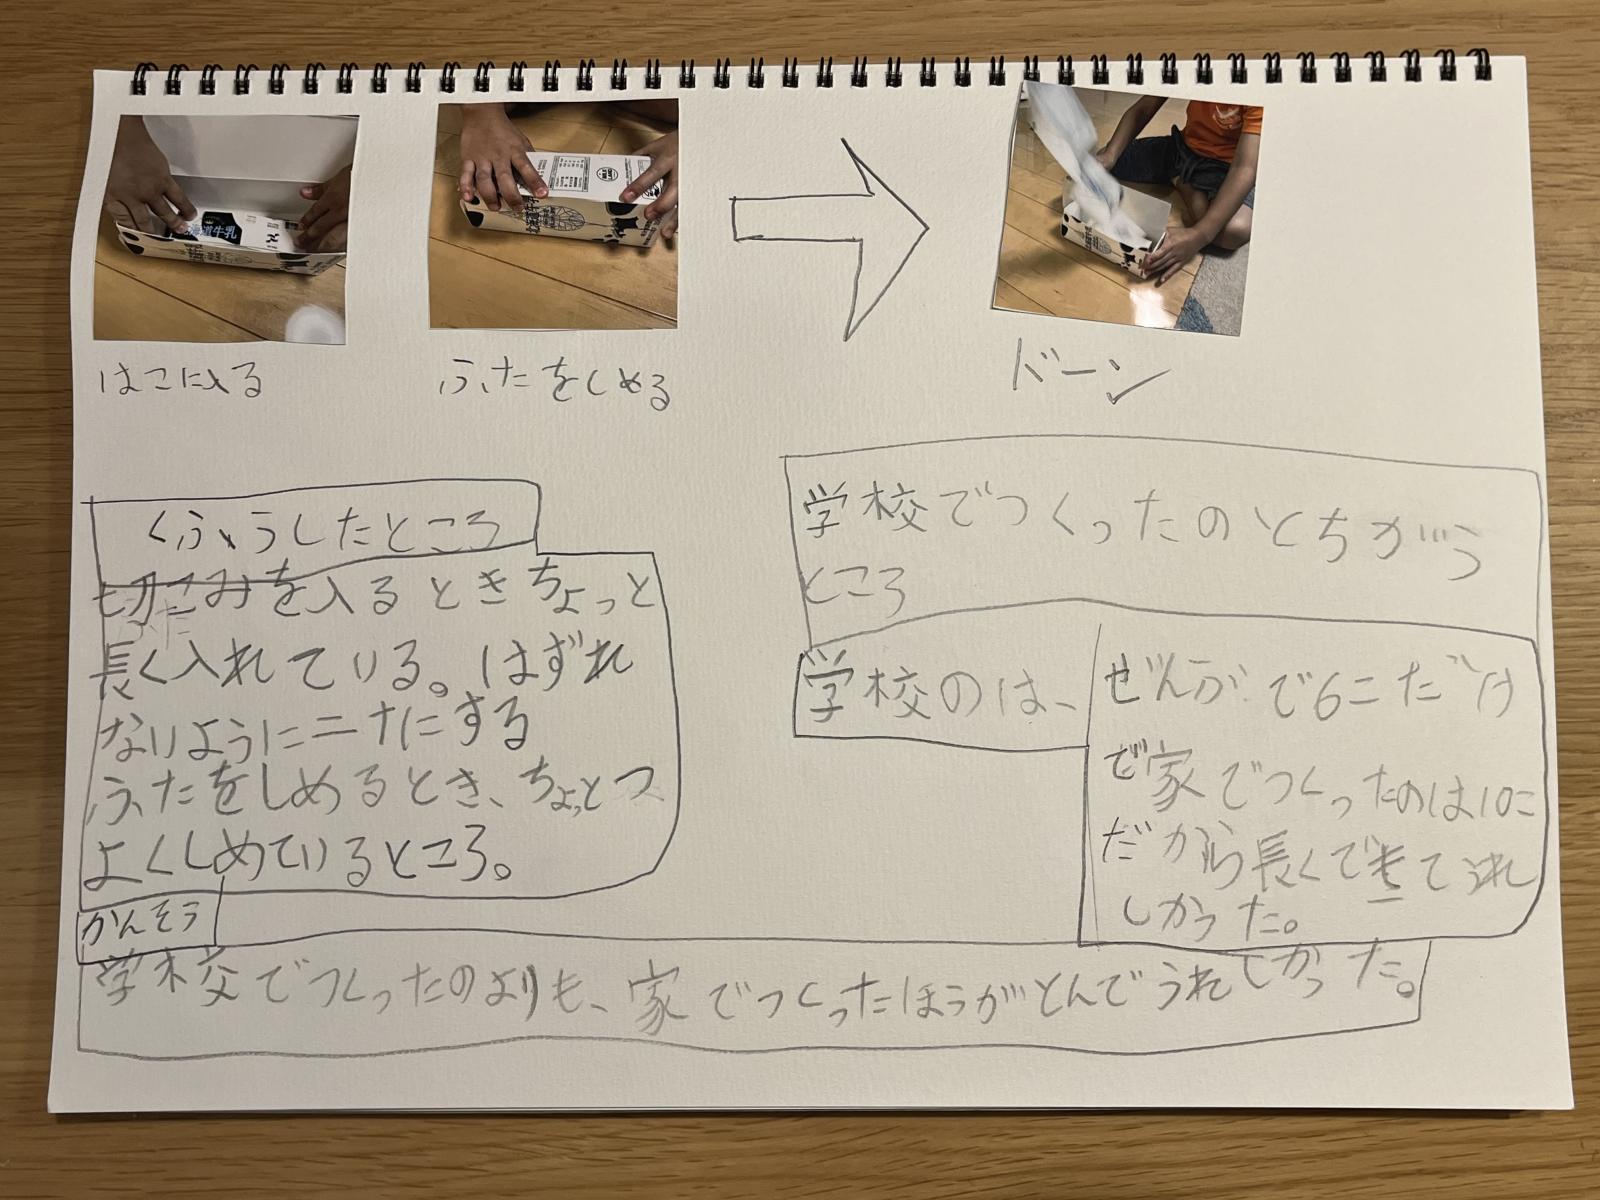 北海道牛乳
はこに入る
ふたをしめる
ドーン
くふうしたところ
切こみを入るときちょっと
長く入れている。はずれ
ないようにニナにする
ふたをしめるとき、ちょっとつ
よくしめているところ。
学校でつくったのとちがう
ところ
学校のは、
ぜんぶで6こだけ
ど家でつくったのは10こ
だから長くできてうれ
しかった。
かんそう
学校でつくったのよりも、家でつくったほうがとんでうれしかった。